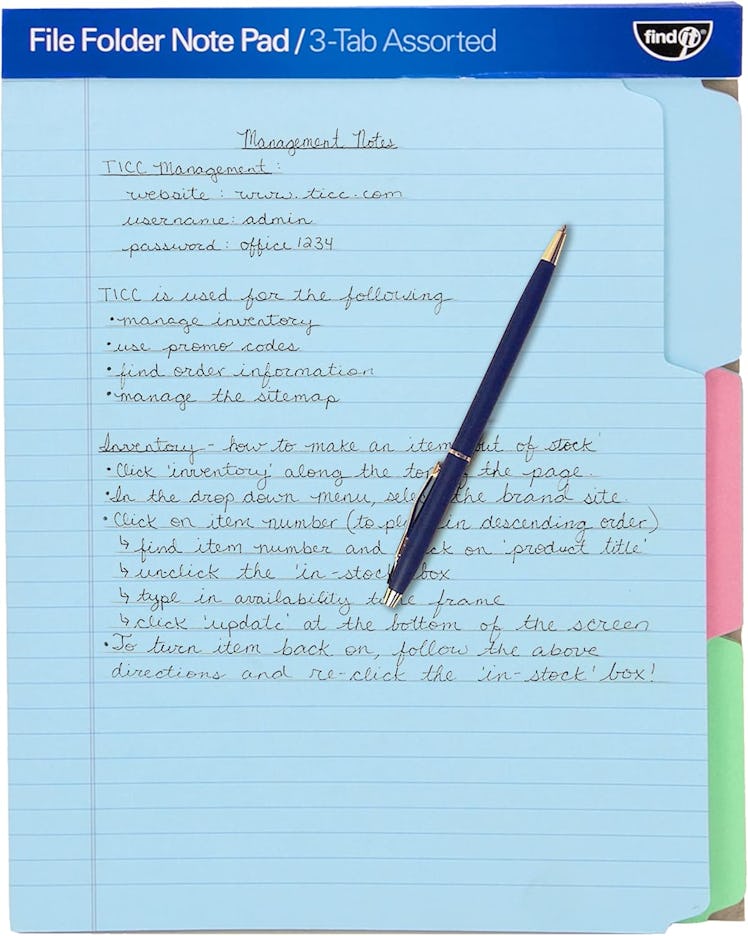 File Folder Note Pad / 3-Tab Assorted
find it®
Management Notes
TICC Management:
website: www.ticc.com
username: admin
password: office1234
TICC is used for the following
•manage inventory
•use promo codes
•find order information
•manage the sitemap
Inventory - how to make an item out of stock'
•Click 'inventory' along the top of the page.
•In the drop down menu, select the brand site.
•Click on item number (to in descending order)
↳find item number and click on 'product title'
↳unclick the 'in-stock' box
↳type in availability time frame
↳click 'update' at the bottom of the screen
•To turn item back on, follow the above
directions and re-click the 'in-stock' box!